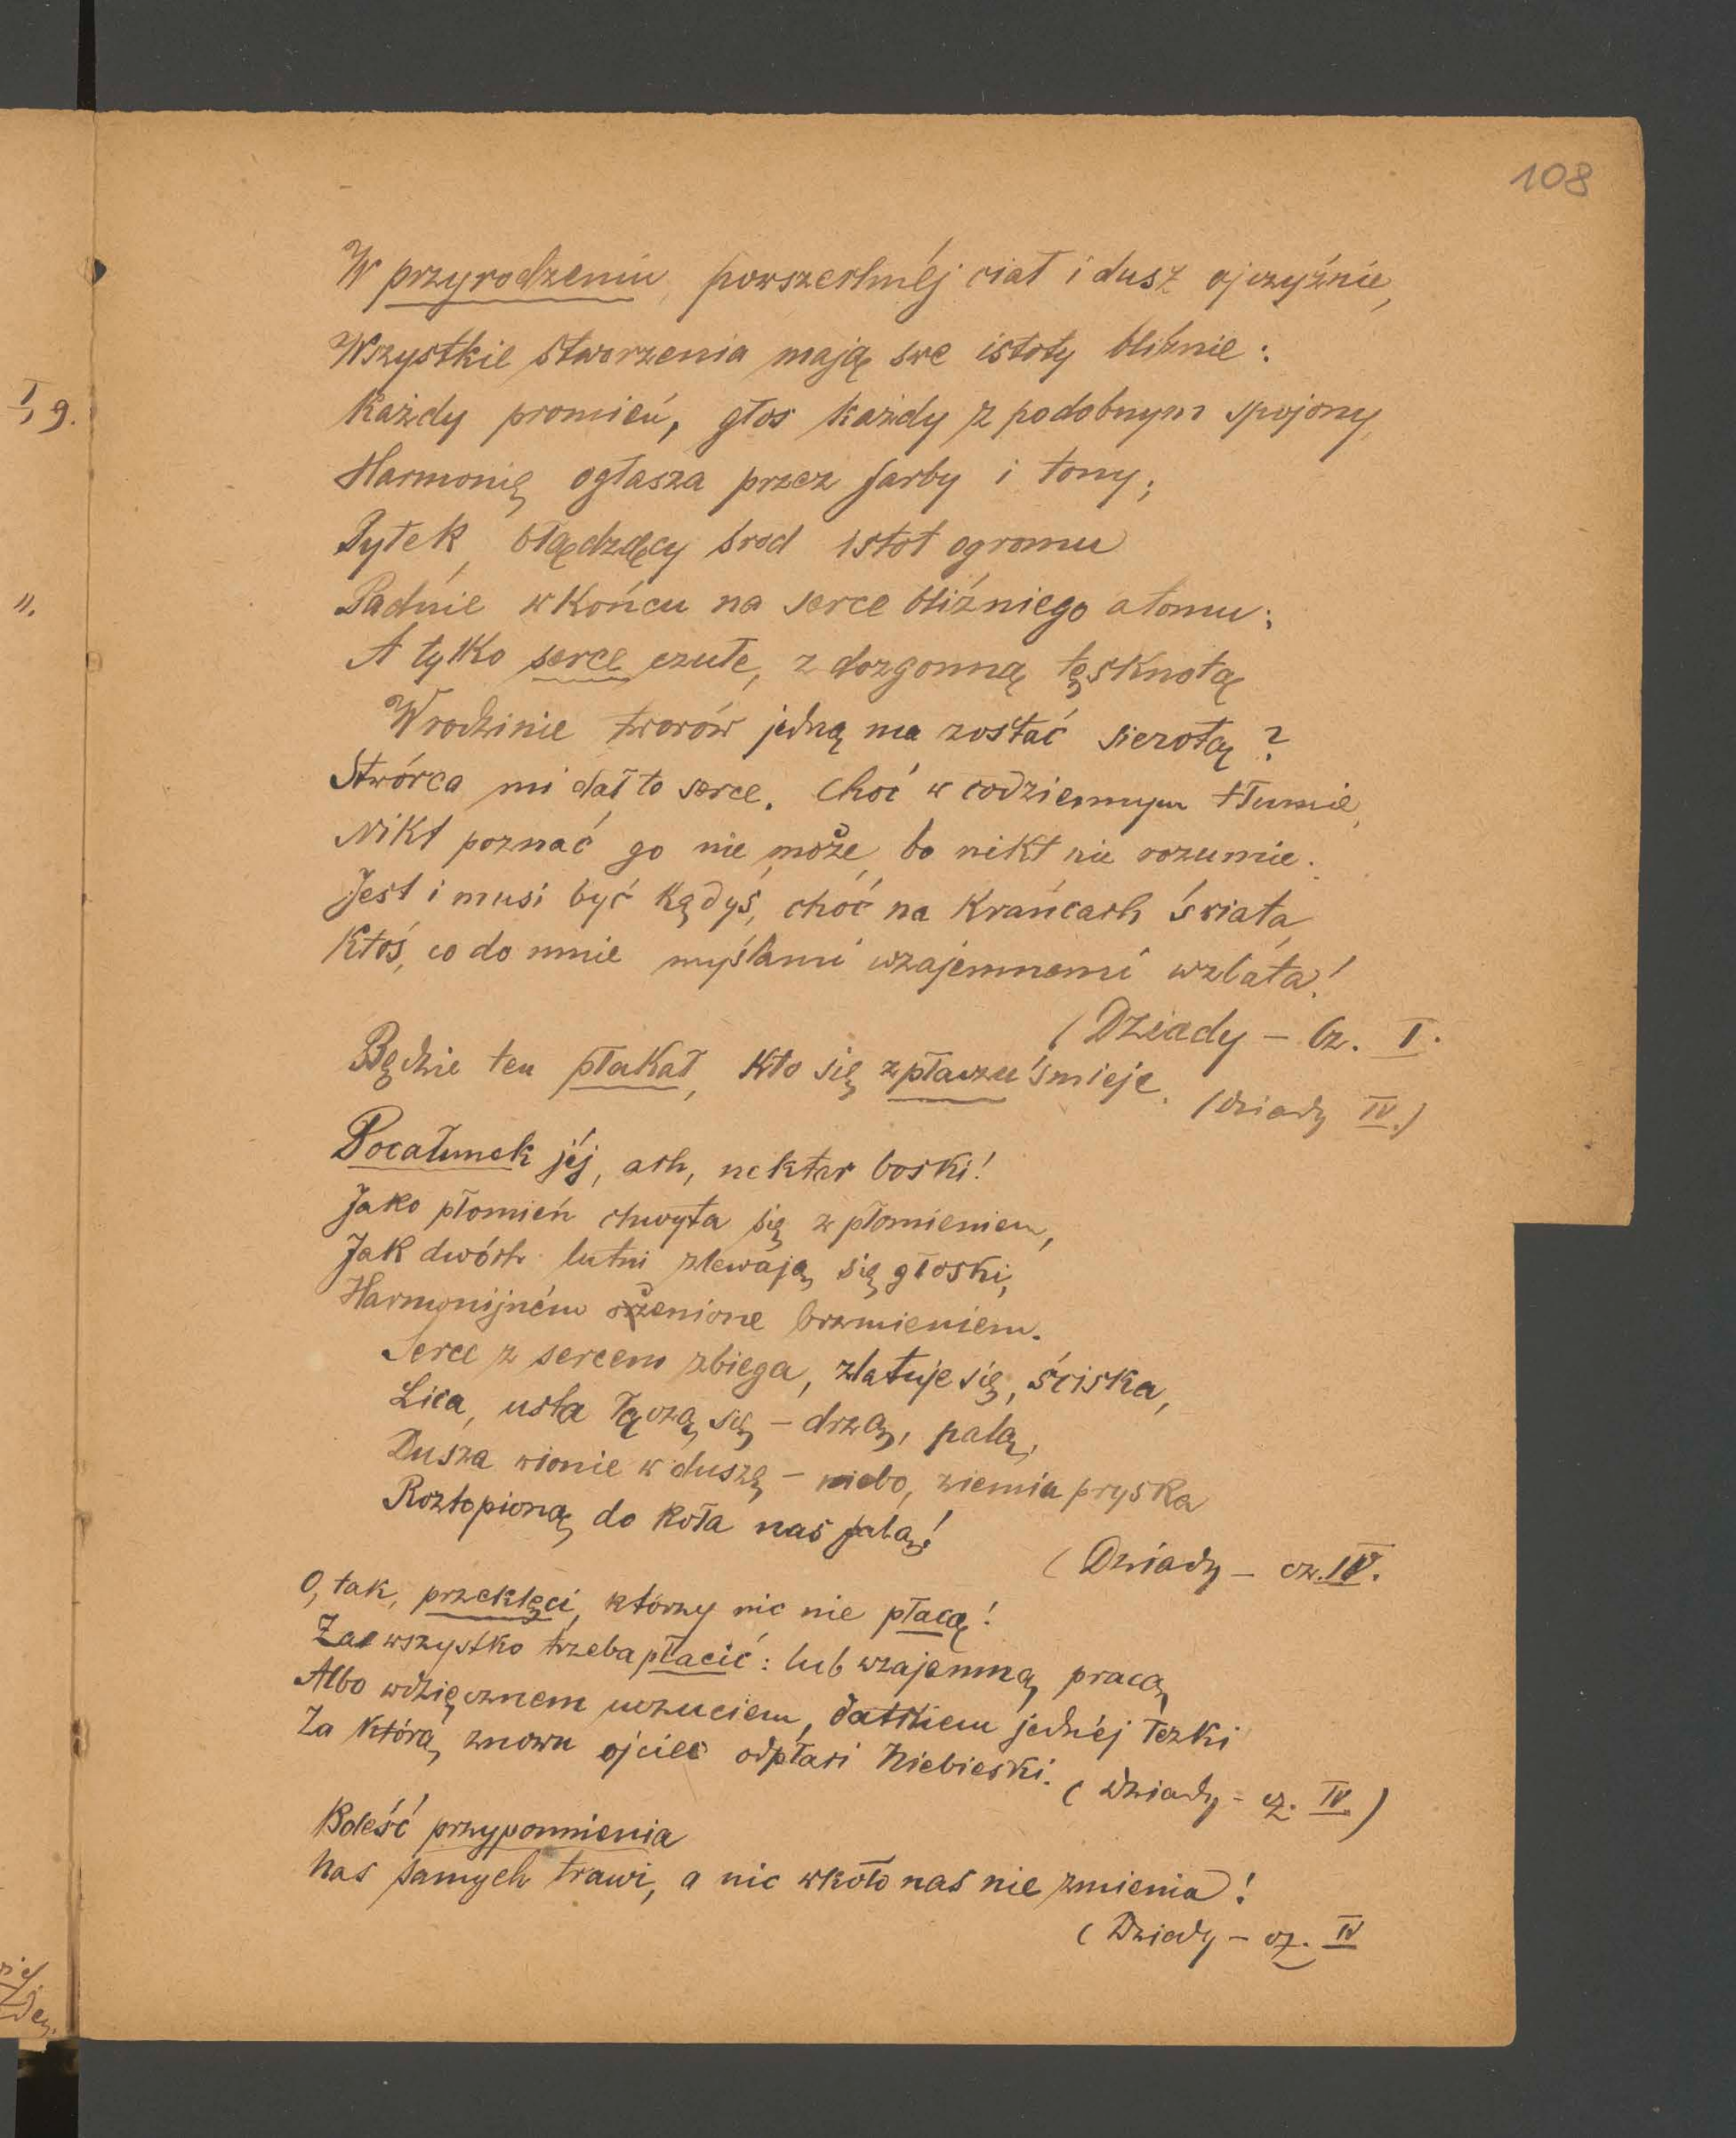 108
W przyrodzeniu, powszechnéj ciał i dusz ojczyźnie,
Wszystkie stworzenia mają swe istoty bliźnie:
Każdy promień, głos każdy z podobnym spojony,
Harmonię ogłasza przez farby i tony;
Pyłek, błądzący śród istot ogromu
Padnie w końcu na serce bliźniego atomu;
A tylko serce czułe, z dozgonną tęsknotą
W rodzinie tworów jedną ma zostać sierotą?
Stwórca mi dał to serce. Choć w codziennym tłumie,
Nikt poznać go nie może, bo nikt nie rozumie.
Jest i musi być kędyś, choć na krańcach świata,
Ktoś, co do mnie myślami wzajemnemi wzlata!
(Dziady - Cz. I.
Będzie ten płakał, kto się z płaczu śmieje. (Dziady IV.)
Pocałunek jéj, ach, nektar boski!
Jako płomień chwyta się z płomieniem,
Jak dwóch lutni zlewają się głoski,
Harmonijném ożenione brzmieniem.
Serce z sercem zbiega, zlatuje się, ściska,
Lica, usta łączą się - drżą, palą,
Dusza wionie w duszę - niebo, ziemia pryska
Roztopioną do koła nas falą!
(Dziady - cz. IV.
O, tak, przeklęci, którzy nic nie płacą!
Za wszystko trzeba płacić: lub wzajemną pracą,
Albo wdzięcznem uczuciem, datkiem jednéj łezki
Za którą znowu ojciec odpłaci Niebieski. (Dziady - cz. IV.)
Boleść przypomnienia
Nas samych trawi, a nic wkoło nas nie zmienia!
(Dziady - cz. IV
I, 9.
".